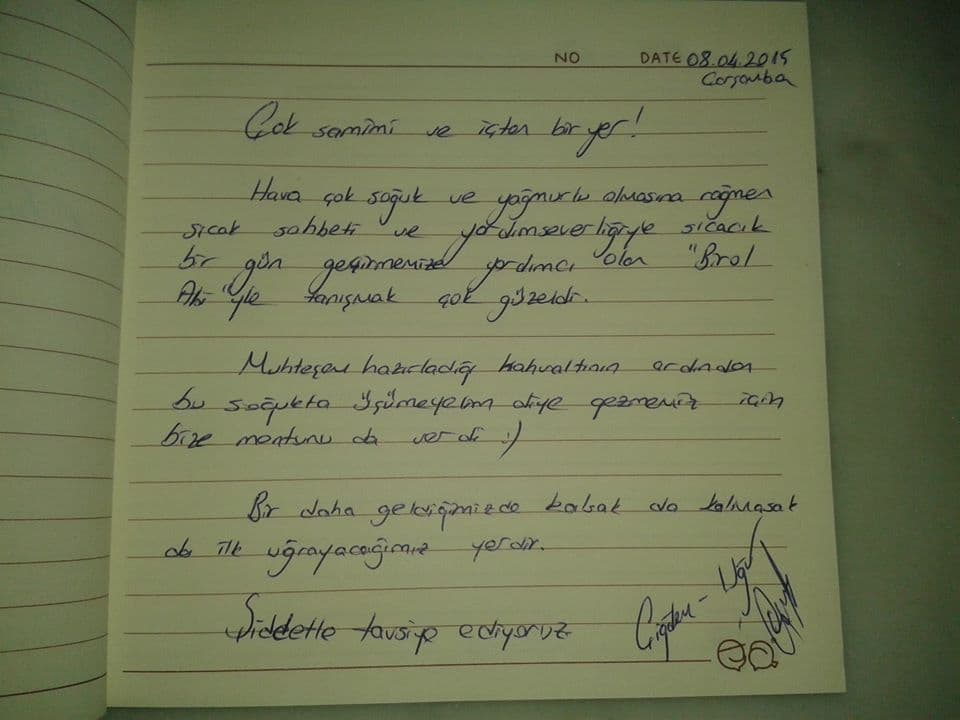 NO DATE 08.04.2015
Çarşamba
Çok samimi ve içten bir yer!
Hava çok soğuk ve yağmurlu olmasına rağmen
sıcak sohbeti ve yardımseverliğiyle sıcacık
bir gün geçirmemize yardımcı olan "Birol
Abi"yle tanışmak çok güzeldi.
Muhteşem hazırladığı kahvaltının ardından
bu soğukta üşümeyelim diye gezmemiz için
bize montunu da verdi :)
Bir daha geldiğimizde kalsak da kalmasak
da ilk uğrayacağımız yerdir.
Şiddetle tavsiye ediyoruz
Çiğdem - Uğur